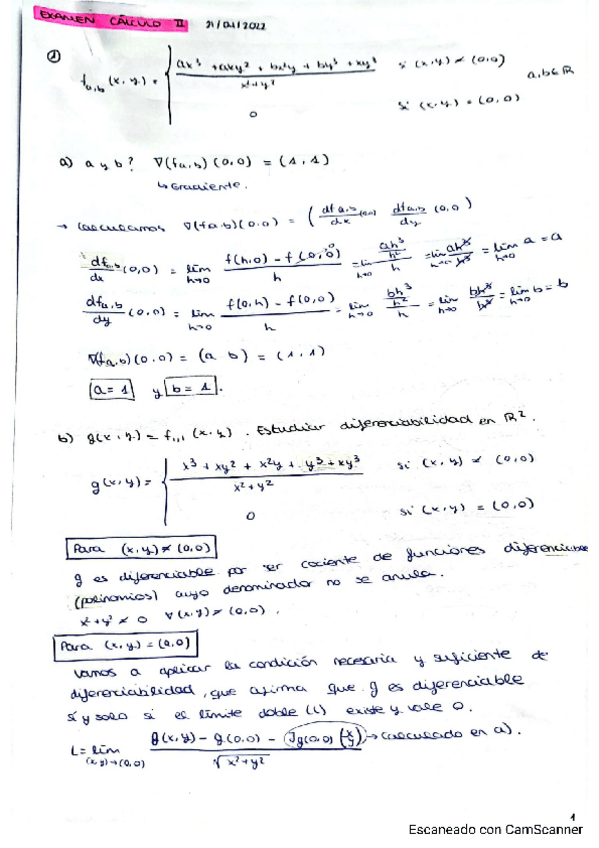 EXAMEN CÁLCULO II 21/04/2022
① f_{a,b}(x,y) = { (ax³ + axy² + bx²y + by³ + xy³)/(x²+y²) si (x,y) ≠ (0,0)
0 si (x,y) = (0,0) a,b ∈ ℝ
a) a y b? ∇(f_{a,b})(0,0) = (1,1)
↳ Gradiente.
→ Calculamos ∇(f_{a,b})(0,0) = (df_{a,b}/dx (0,0) df_{a,b}/dy (0,0))
df_{a,b}/dx (0,0) = lím_{h→0} (f(h,0) - f(0,0))/h = lím_{h→0} (ah³/h²)/h = lím ah³/h³ = lím_{h→0} a = a
df_{a,b}/dy (0,0) = lím_{h→0} (f(0,h) - f(0,0))/h = lím_{h→0} (bh³/h²)/h = lím_{h→0} bh³/h³ = lím_{h→0} b = b
∇(f_{a,b})(0,0) = (a b) = (1,1)
a = 1 y b = 1.
b) g(x,y) = f_{1,1}(x,y). Estudiar diferenciabilidad en ℝ².
g(x,y) = { (x³ + xy² + x²y + y³ + xy³)/(x²+y²) si (x,y) ≠ (0,0)
0 si (x,y) = (0,0)
Para (x,y) ≠ (0,0)
g es diferenciable por ser cociente de funciones diferenciable
(polinomios) cuyo denominador no se anula.
x²+y² ≠ 0 ∀(x,y) ≠ (0,0).
Para (x,y) = (0,0)
Vamos a aplicar la condición necesaria y suficiente de
diferenciabilidad, que afirma que g es diferenciable
si y solo si el límite doble (L) existe y vale 0.
L = lím_{(x,y)→(0,0)} (g(x,y) - g(0,0) - Jg(0,0)(x y))/√(x²+y²) → calculado en a).
1
Escaneado con CamScanner